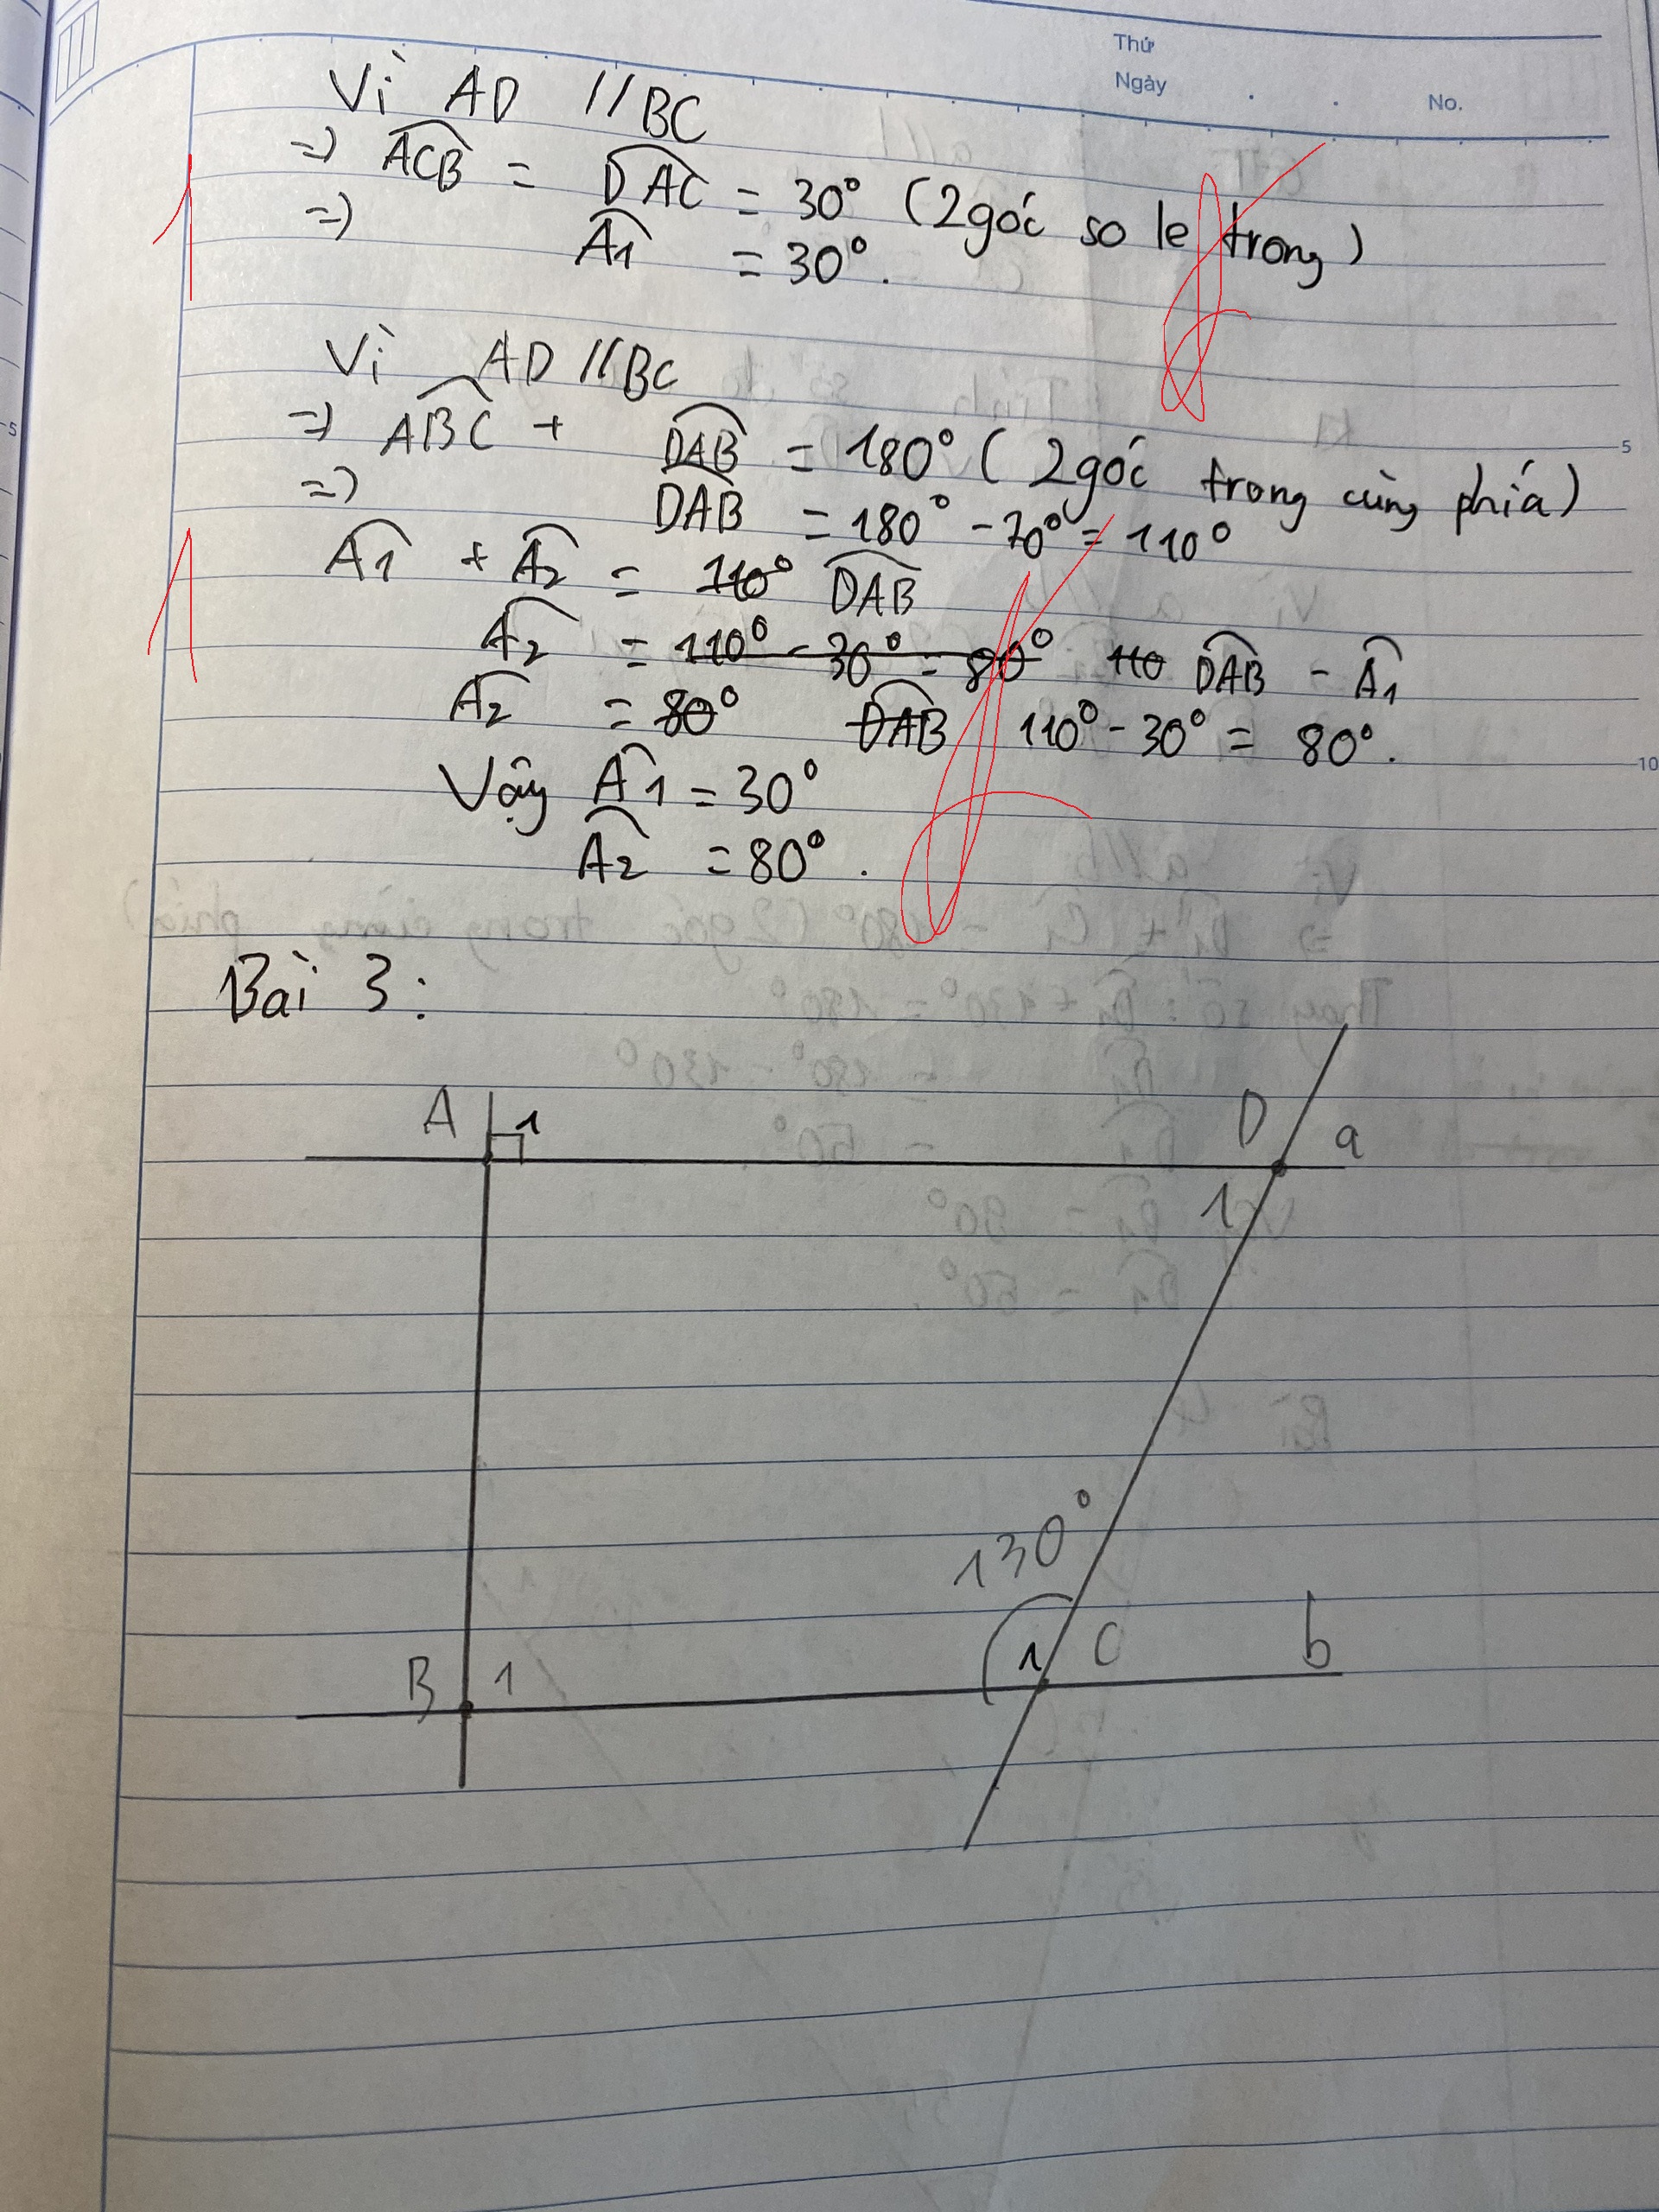 Thứ
Ngày
No.
Vì AD // BC
=> ACB = DAC = 30° (2 góc so le trong)
=> A1 = 30°.
1
Vì AD // BC
=> ABC + DAB = 180° (2 góc trong cùng phía)
5
=> DAB = 180° - 70° = 110°
A1 + A2 = 110° DAB
1
A2 = 110° - 30° = 80° 110 DAB - A1
A2 = 80° DAB 110° - 30° = 80°.
10
Vậy A1 = 30°
A2 = 80°.
Bài 3:
A 1 D a
1
130°
1 C b
B 1